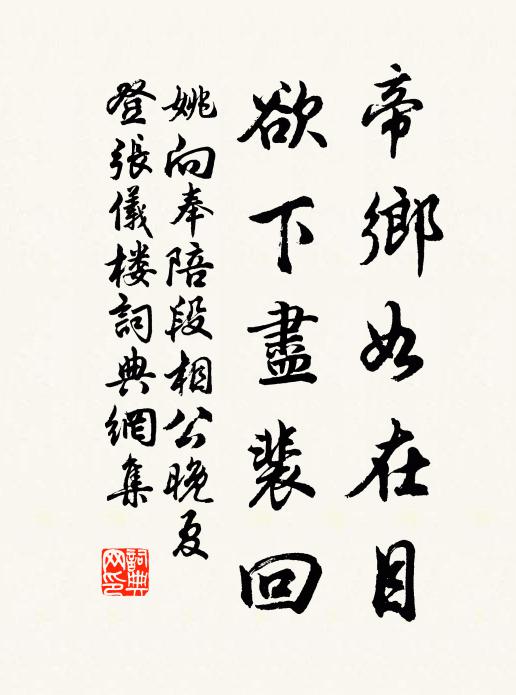 帝鄉如在目
欲下盡裴回
姚向奉陪段相公晚夏
登張儀樓詞典網集
詞典网印